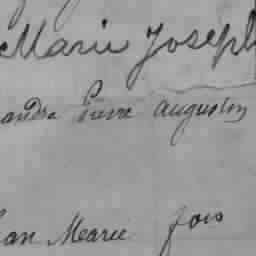 Marie Joseph
andre Pierre augustin
ean Marie fois